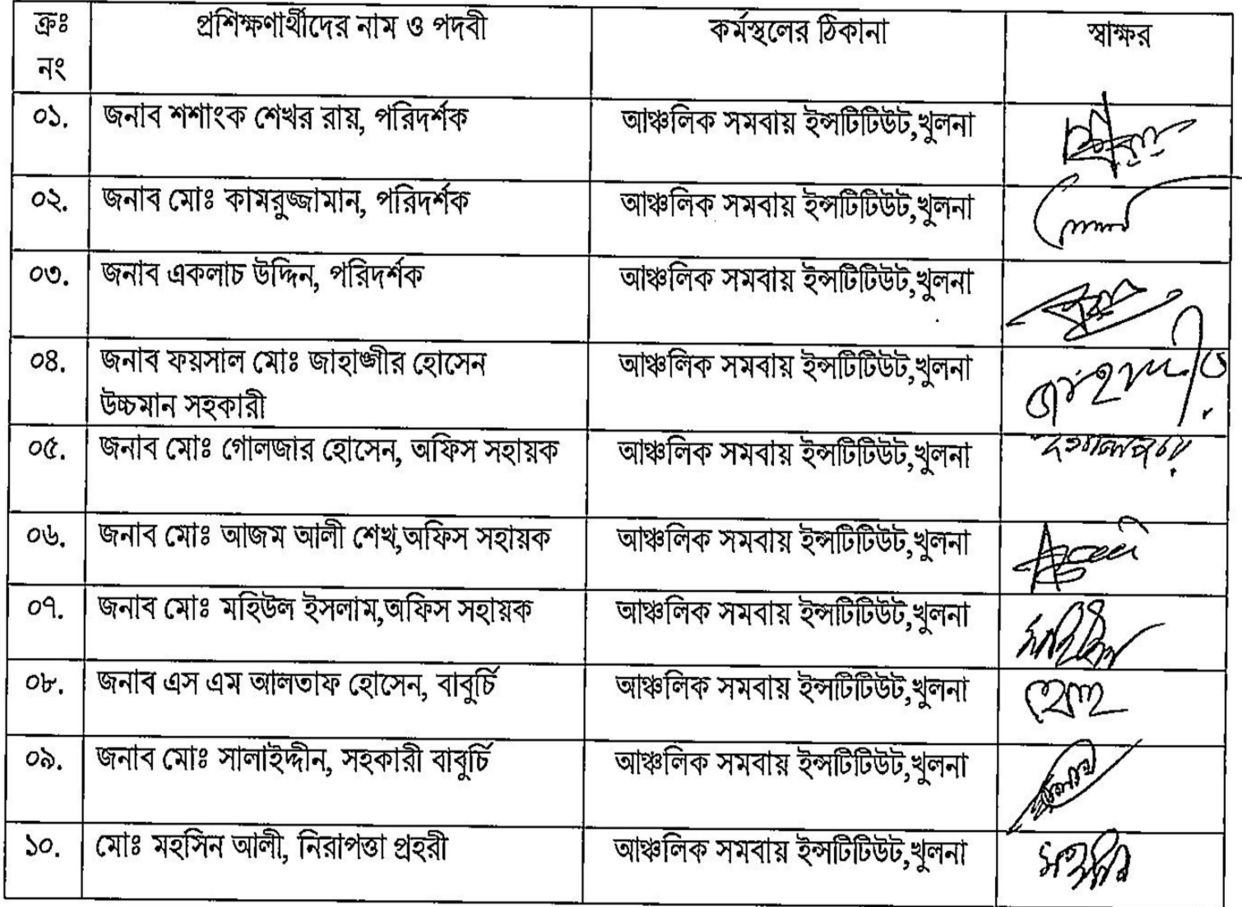 ক্রঃ নং প্রশিক্ষণার্থীদের নাম ও পদবী কর্মস্থলের ঠিকানা স্বাক্ষর
০১. জনাব শশাংক শেখর রায়, পরিদর্শক আঞ্চলিক সমবায় ইন্সটিটিউট,খুলনা
০২. জনাব মোঃ কামরুজ্জামান, পরিদর্শক আঞ্চলিক সমবায় ইন্সটিটিউট,খুলনা
০৩. জনাব একলাচ উদ্দিন, পরিদর্শক আঞ্চলিক সমবায় ইন্সটিটিউট,খুলনা
০৪. জনাব ফয়সাল মোঃ জাহাঙ্গীর হোসেন আঞ্চলিক সমবায় ইন্সটিটিউট,খুলনা
উচ্চমান সহকারী
০৫. জনাব মোঃ গোলজার হোসেন, অফিস সহায়ক আঞ্চলিক সমবায় ইন্সটিটিউট,খুলনা
০৬. জনাব মোঃ আজম আলী শেখ,অফিস সহায়ক আঞ্চলিক সমবায় ইন্সটিটিউট,খুলনা
০৭. জনাব মোঃ মহিউল ইসলাম,অফিস সহায়ক আঞ্চলিক সমবায় ইন্সটিটিউট,খুলনা
০৮. জনাব এস এম আলতাফ হোসেন, বাবুর্চি আঞ্চলিক সমবায় ইন্সটিটিউট,খুলনা
০৯. জনাব মোঃ সালাইদ্দীন, সহকারী বাবুর্চি আঞ্চলিক সমবায় ইন্সটিটিউট,খুলনা
১০. মোঃ মহসিন আলী, নিরাপত্তা প্রহরী আঞ্চলিক সমবায় ইন্সটিটিউট,খুলনা